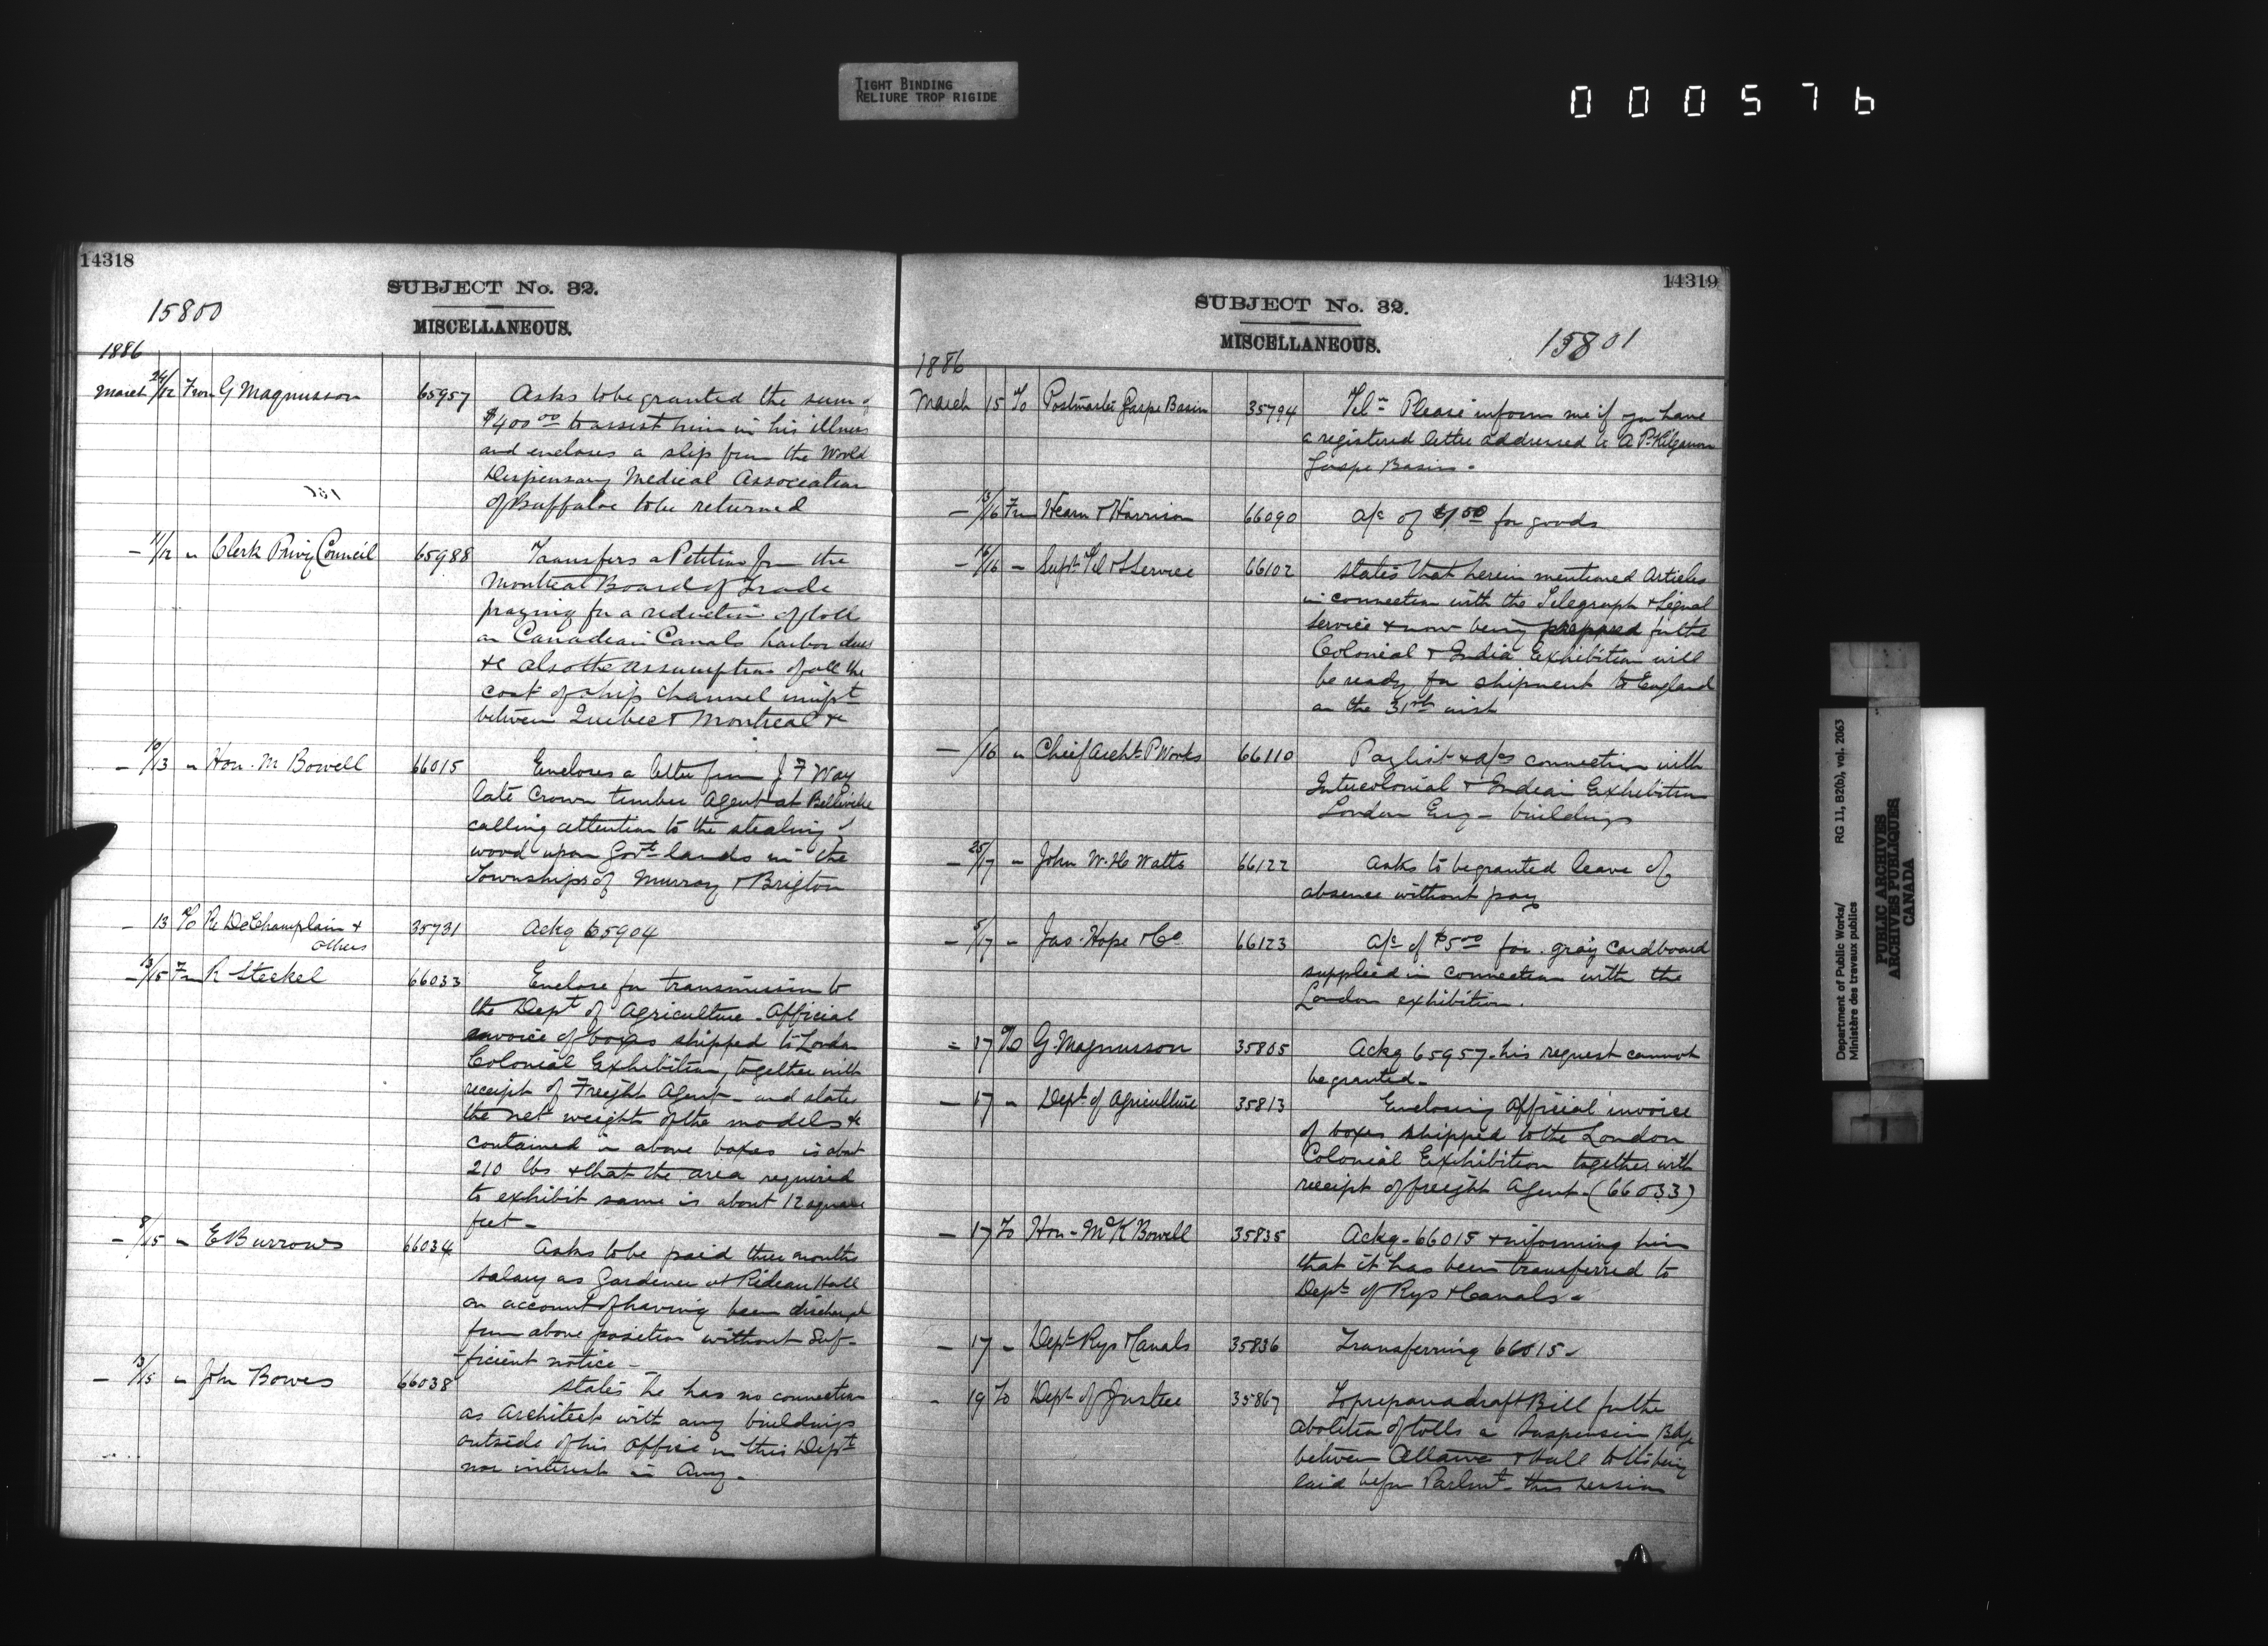 TIGHT BINDING
RELIURE TROP RIGIDE
000576
14318
SUBJECT No. 32.
15800
MISCELLANEOUS.
1886
March 24/12 From G Magnusson 65957 Asks to be granted the sum of
$400 00 to assist him in his illness
and encloses a slip from the World
Dispensary Medical Association
of Buffaloe to be returned
- 11/12 " Clerk Privy Council 65988 Transfers a Petition from the
Montreal Board of Trade
praying for a reduction of toll
on Canadian Canals harbor dues
&c also the assumption of all the
cost of ship channel impt
between Quebec & Montreal &c
- 10/13 " Hon. M Bowell 66015 Encloses a letter from J F Way
late Crown timber Agent at Belleville
calling attention to the stealing of
wood upon Govt lands in the
Townships of Murray & Brigton
- 13 To Rc DeChamplain &
others 35731 Ackg 65904
- 13/15 Fm R Steckel 66033 Enclose for transmission to
the Dept of Agriculture. Official
invoice of boxes shipped to London
Colonial Exhibition, together with
receipt of Freight Agent - and states
the net weight of the models &c
contained in above boxes is about
210 lbs & that the area required
to exhibit same is about 12 square
feet -
- 8/15 " E Burrows 66034 Asks to be paid three months
salary as Gardener at Rideau Hall
on account of having been discharged
from above position without suf-
-ficient notice -
- 13/15 " John Bowes 66038 States he has no connection
as Architect with any buildings
outside of his office in this Dept
nor interest in any -
14319
SUBJECT No. 32.
MISCELLANEOUS.
15801
1886
March 15 To Postmaster Gaspe Basin 35794 Telm Please inform me if you have
a registered letter addressed to A P. Kilganon
Gaspe Basin -
- 13/16 Fm Hearn & Harrison 66090 a/c of $1.50 for goods
- 16/16 - Supt Tel & S Service 66102 States that herein mentioned Articles
in connection with the Telegraph & Signal
Service & now being prepared for the
Colonial & India Exhibition will
be ready for shipment to England
on the 31st inst
- /16 " Chief Archt P Works 66110 Paylist & a/cs connection with
Intercolonial & Indian Exhibition
London Eng - buildings
- 25/17 - John W. H Watts 66122 Asks to be granted leave of
absence without pay
- 5/17 - Jas. Hope & Co 66123 a/c of $5 00 for gray cardboard
supplied in connection with the
London exhibition.
- 17 To G. Magnusson 35805 Ackg 65957. his request cannot
be granted -
- 17 - Dept of Agriculture 35813 Enclosing Official invoice
of boxes shipped to the London
Colonial Exhibition together with
receipt of freight Agent. (66033)
- 17 To Hon - McK Bowell 35835 Ackg - 66015 & informing him
that it has been transferred to
Dept of Rys & Canals -
- 17 - Dept Rys & Canals 35836 Transferring 66015 -
- 19 To Dept of Justice 35867 To prepare a draft Bill for the
abolition of tolls on Suspension Bdge
between Ottawa & Hull to its being
laid before Parlmt this session
Department of Public Works/
Ministère des travaux publics
RG 11, B2(b), vol. 2063
PUBLIC ARCHIVES
ARCHIVES PUBLIQUES
CANADA